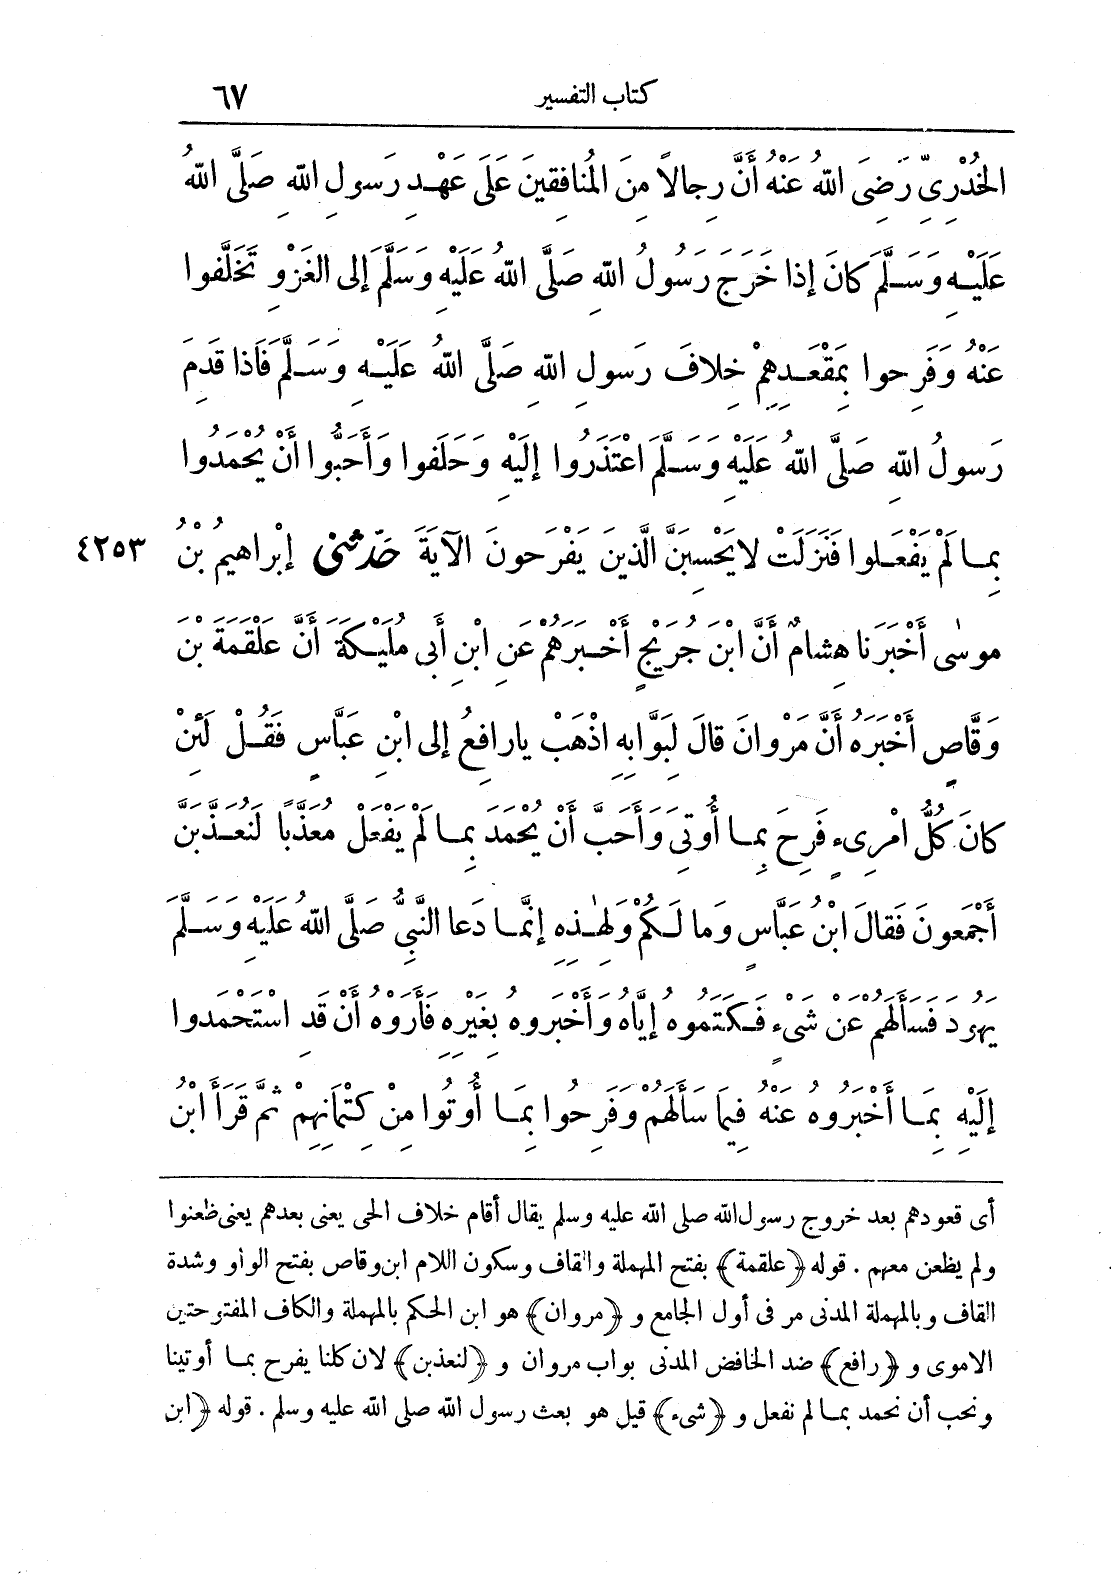 كتاب التفسير ٦٧
الخُدْرِىِّ رَضِىَ اللهُ عَنْهُ أَنَّ رِجالاً مِنَ المُنافِقِينَ عَلَى عَهْدِ رَسولِ اللهِ صَلَّى اللهُ
عَلَيْهِ وَسَلَّمَ كانَ إِذا خَرَجَ رَسُولُ اللهِ صَلَّى اللهُ عَلَيْهِ وَسَلَّمَ إلى الغَزْوِ تَخَلَّفوا
عَنْهُ وَفَرِحوا بِمَقْعَدِهِمْ خِلافَ رَسولِ اللهِ صَلَّى اللهُ عَلَيْهِ وَسَلَّمَ فَاذا قَدِمَ
رَسولُ اللهِ صَلَّى اللهُ عَلَيْهِ وَسَلَّمَ اعْتَذَرُوا إلَيْهِ وَحَلَفوا وَأَحَبُّوا أَنْ يُحْمَدُوا
بِما لَمْ يَفْعَلوا فَنَزَلَتْ لا يَحْسِبَنَّ الَّذينَ يَفْرَحونَ الآيَةَ حَدَّثَنى إبْراهيمُ بْنُ ٤٢٥٣
موسٰى أَخْبَرَنا هِشامٌ أَنَّ ابْنَ جُرَيْجٍ أَخْبَرَهُمْ عَنِ ابْنِ أَبى مُلَيْكَةَ أَنَّ عَلْقَمَةَ بْنَ
وَقَّاصٍ أَخْبَرَهُ أَنَّ مَرْوانَ قالَ لِبَوَّابِهِ اذْهَبْ يارافِعُ إلى ابْنِ عَبَّاسٍ فَقُلْ لَئِنْ
كانَ كُلُّ امْرِىءٍ فَرِحَ بِما أُوتِىَ وَأَحَبَّ أَنْ يُحْمَدَ بِما لَمْ يَفْعَلْ مُعَذَّباً لَنُعَذَّبَنَّ
أَجْمَعونَ فَقالَ ابْنُ عَبَّاسٍ وَما لَكُمْ وَلِهٰذِهِ إِنَّما دَعا النَّبِىُّ صَلَّى اللهُ عَلَيْهِ وَسَلَّمَ
يَهودَ فَسَأَلَهُمْ عَنْ شَىْءٍ فَكَتَمُوه إيَّاهُ وَأَخْبَروه بِغَيْرِهِ فَأَرَوْهُ أَنْ قَدِ اسْتَحْمَدوا
إلَيْهِ بِمَا أَخْبَرُوهُ عَنْهُ فِيمَا سَأَلَهُمْ وَفَرِحُوا بِمَا أُوتُوا مِنْ كِتْمَانِهِمْ ثُمَّ قَرَأَ ابْنُ
أى قعودهم بعد خروج رسول الله صلى الله عليه وسلم يقال أقام خلاف الحى يعنى بعدهم يعنى ظعنوا
ولم يظعن معهم . قوله ﴿علقمة﴾ بفتح المهملة والقاف وسكون اللام ابن وقاص بفتح الواو وشدة
القاف وبالمهملة المدنى مر فى أول الجامع و ﴿مروان﴾ هو ابن الحكم بالمهملة والكاف المفتوحتين
الاموى و ﴿رافع﴾ ضد الخافض المدنى بواب مروان و ﴿لنعذبن﴾ لان كلنا يفرح بما أوتينا
ونحب أن نحمد بما لم نفعل و ﴿شىء﴾ قيل هو بعث رسول الله صلى الله عليه وسلم . قوله ﴿ابن